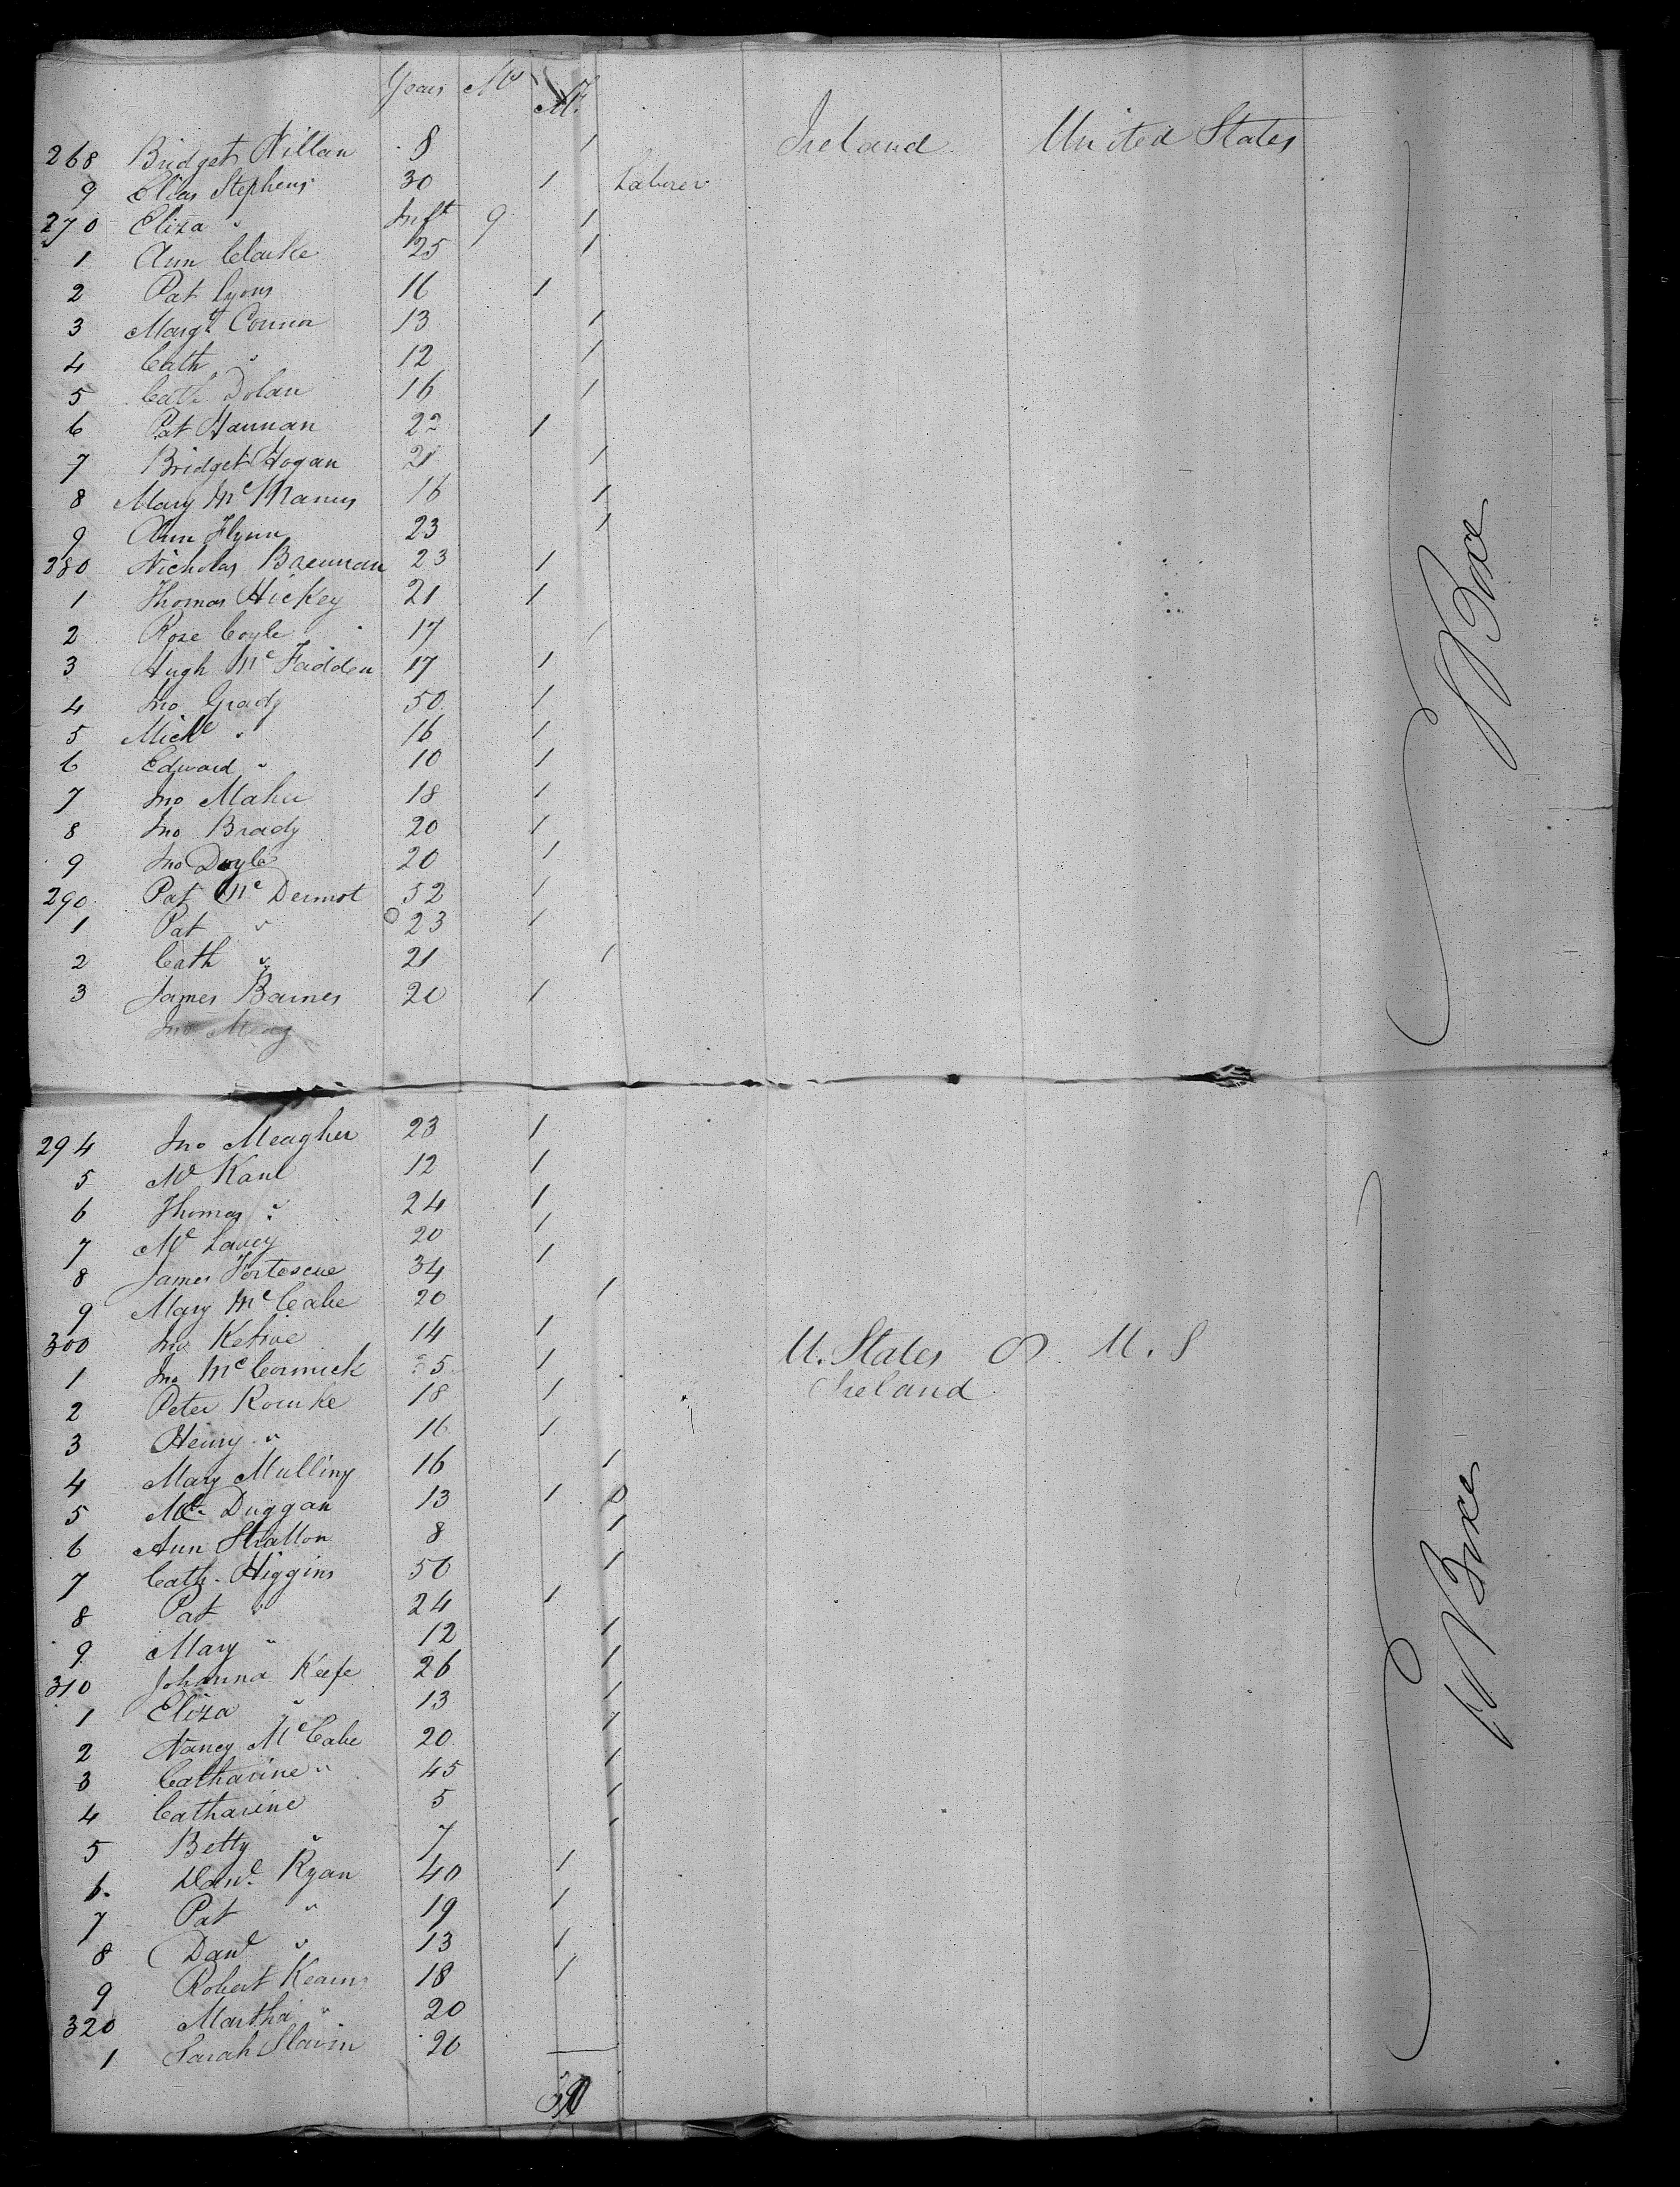 Years Mo M. F
268 Bridget Nillan 8 1 Ireland United States
9 Elias Stephens 30 1 Laborer
270 Eliza " Inft 9 1
1 Ann Clarke 25 1
2 Pat Lyons 16 1
3 Margt Connor 13 1
4 Cath " 12 1
5 Cath Dolan 16 1
6 Pat Hannan 22 1
7 Bridget Hogan 21 1
8 Mary McManus 16 1
9 Ann Flynn 23 1
280 Nicholas Brennan 23 1
1 Thomas Hickey 21 1
2 Rose Coyle 17 1
3 Hugh McFadden 17 1
4 Jno Grady 50 1
5 Michl " 16 1
6 Edward " 10 1
7 Jno Maher 18 1
8 Jno Brady 20 1
9 Jno Doyle 20 1
290 Pat McDermot 52 1
1 Pat " 23 1
2 Cath " 21 1
3 James Barnes 20 1
Jno Meag
294 Jno Meagher 23 1
5 Ml Kane 12 1
6 Thomas " 24 1
7 Ml Lavey 20 1
8 James Fortescue 34 1
9 Mary McCabe 20 1
300 Jno 14 1 U. States U. S
1 Jno McCormick 5 1 Ireland
2 Peter Rourke 18 1
3 Henry " 16 1
4 Mary Mulling 16 1
5 Duggan 13 1
6 Ann Stratton 8 1
7 Cath. Higgins 50 1
8 Pat " 24 1
9 Mary " 12 1
310 Johanna Keefe 26 1
1 Eliza " 13 1
2 Nancy McCabe 20 1
3 Catharine " 45 1
4 Catharine 5 1
5 Betty " 7 1
6. Danl Ryan 40 1
7 Pat " 19 1
8 Danl " 13 1
9 Robert Kearns 18 1
320 Martha " 20
1 Sarah Slavin 20